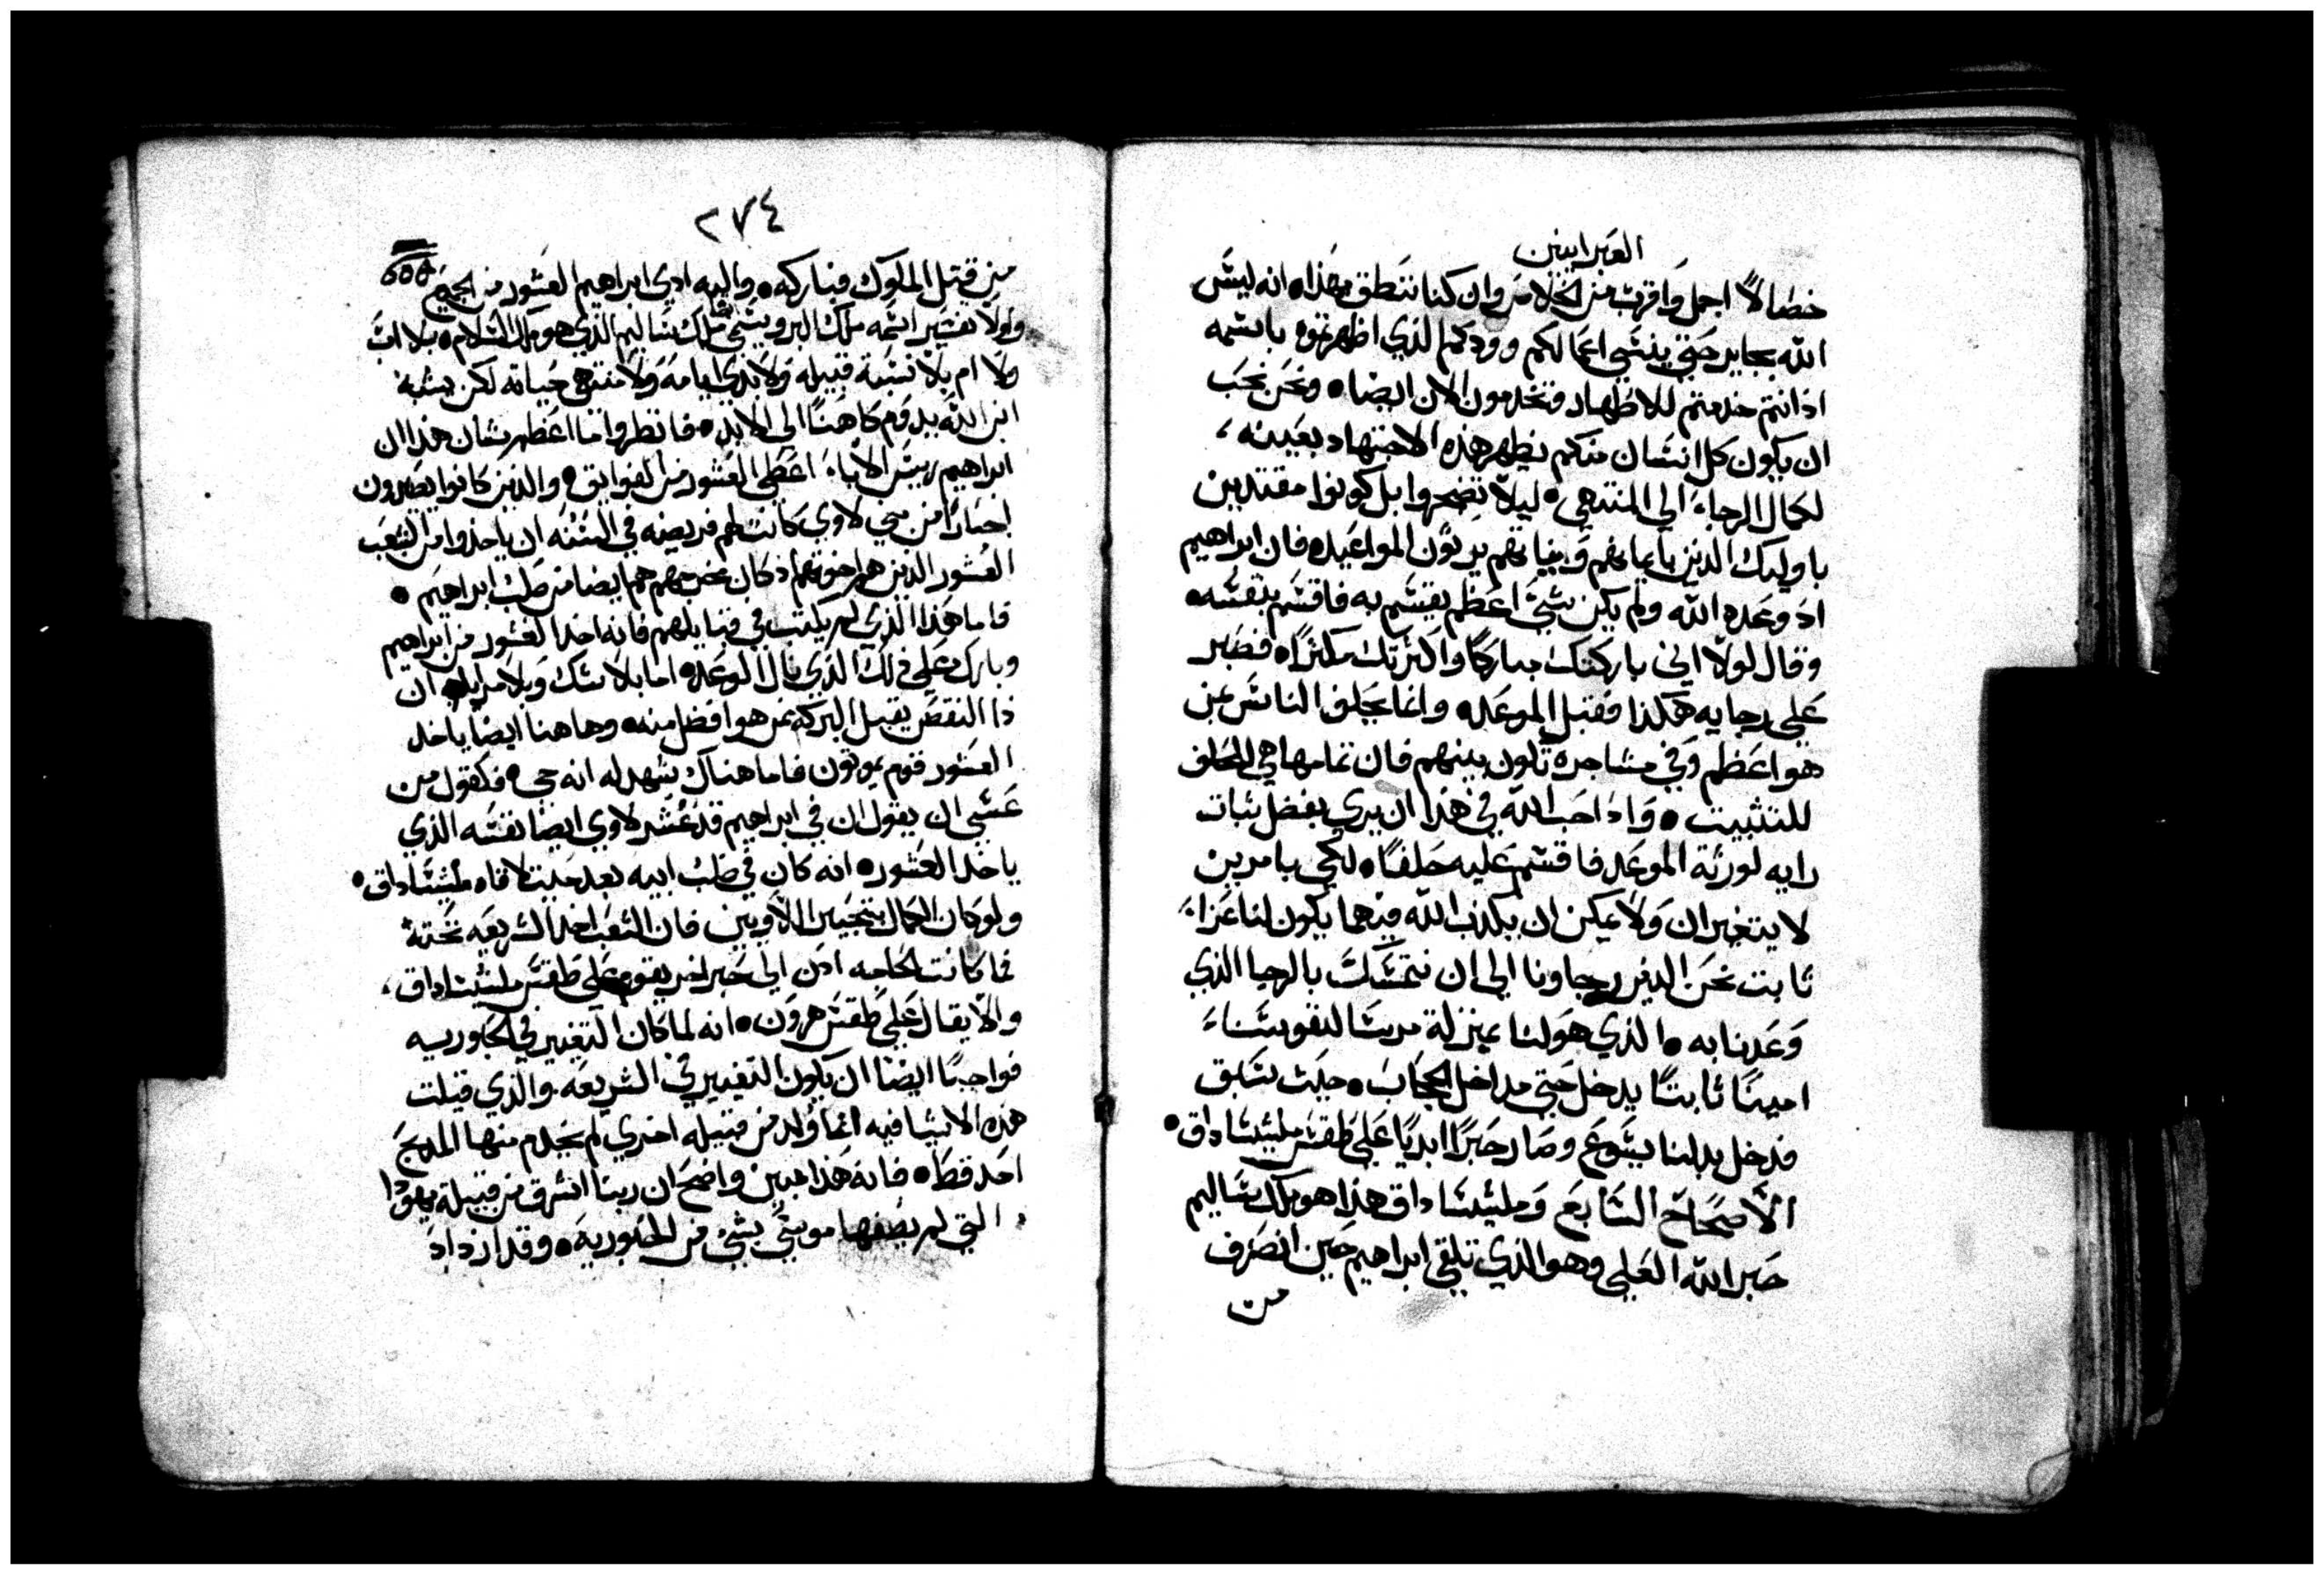 العبرانيين
خصالاً اجمل واقرب من الخلاص وان كنا ننطق بهذا۰ انه ليس
الله بجاير حتي ينسي اعمالكم وودكم الذي اظهرتموه باسمه
اذ انتم خدمتم للاطهار وتخدمون الان ايضا۰ ونحن نحب
ان يكون كل انسان منكم يظهر هذه الاجتهاد بعينه،
لكمال الرجاء الي المنتهي۰ ليلا تضجروا بل كونوا مقتديين
باوليك الذين بايمانهم وبنياتهم يرثون المواعيد۰ فان ابراهيم
اذ وعده الله ولم يكن بشئ اعظم يقسم به فاقسم بنفسه۰
وقال لولا اني باركتك مباركًا واكثرتك مكثرًا۰ فصبر
علي رجايه هكذا فقبل الموعد۰ وانما يحلف الناس بمن
هو اعظم وفي مشاجرة تكون بينهم فان تمامها هي الحلف
للتثبيت۰ واذ احب الله في هذا ان يري بفضل ثبات
رايه لورثة الموعد فاقسم عليه حلفًا۰ لكي بامرين
لا يتغيران ولا يمكن ان يكذب الله فيهما يكون لنا عزاء
ثابت نحن الذين رجاونا الي ان نتمسك بالرجا الذي
وعدنا به۰ الذي هو لنا بمنزلة مرسا لنفوسنا،
امينًا ثابتًا يدخل حتي مداخل الحجاب۰ حيث سبق
فدخل بدلنا يسوع وصار حبرًا ابديًا علي طقس مليشيساداق۰
الاصحاح السابع وملشيساداق هذا هو ملك ساليم
حبر الله العلي وهو الذي تلقي ابراهيم حين انصرف
من
٢٧٤
من قتل الملوك فباركه۰ واليه ادي ابراهيم العشور من الجميع
واولا تفسير اسمه ملك البر ويسمي ملك ساليم الذي هو ملك السلام۰ بلا اب
ولا ام بلا نسبة قبيله ولا بدي ايامه ولا منتهي حياته لكن بشبه
ابن الله يدوم كاهنًا الي الابد۰ فانظروا ما اعظم شان هذا ان
ابراهيم رييس الاباء اعطي العشور من الفوايق۰ والذين كانوا يصيرون
احبارًا من بني لاوي كانت لهم فريضه في السنه ان ياخذوا من الشعب
العشور الذين هم اخوتهم اذ كان مخرجهم هم ايضا من صلب ابراهيم۰
فاما هذا الذي لم يكتب في قبايلهم فانه اخذ العشور من ابراهيم
وبارك علي ذلك الذي نال الوعد۰ اما بلا شك وبلا مرايه ان
ذا النقص يقبل البركه ممن هو افضل منه۰ وها هنا ايضًا ياخد
العشور قوم يموتون فاما هناك يشهد له انه حي۰ فكقول من
عسي ان يقول ان في ابراهيم قد عُشر لاوي ايضا نفسه الذي
ياخد العشور۰ انه كان في صلب ابيه بعد حيث لاقاه مليشيساداق۰
ولو كان الكمال بتحبير اللاويين فان الشعب اخد الشريعه تحته
فما كانت الحاجه اذن الي حبر اخر يقوم علي طقس ملشيساداق،
والا يقال علي طقس هرون۰ انه لما كان التغيير في الحاوريه
فواجبًا ايضًا ان يكون التغيير في الشريعه. والذي قيلت
هذه الاشيا فيه انما وُلد من قبيله اخري لم يخدم منها المذبح
احد قط۰ فانه هذا مبين واضح ان ربنا اشرق من قبيلة يهوذا
التي لم يصفها موسي بشئ من الحبورية۰ وقد ازداد